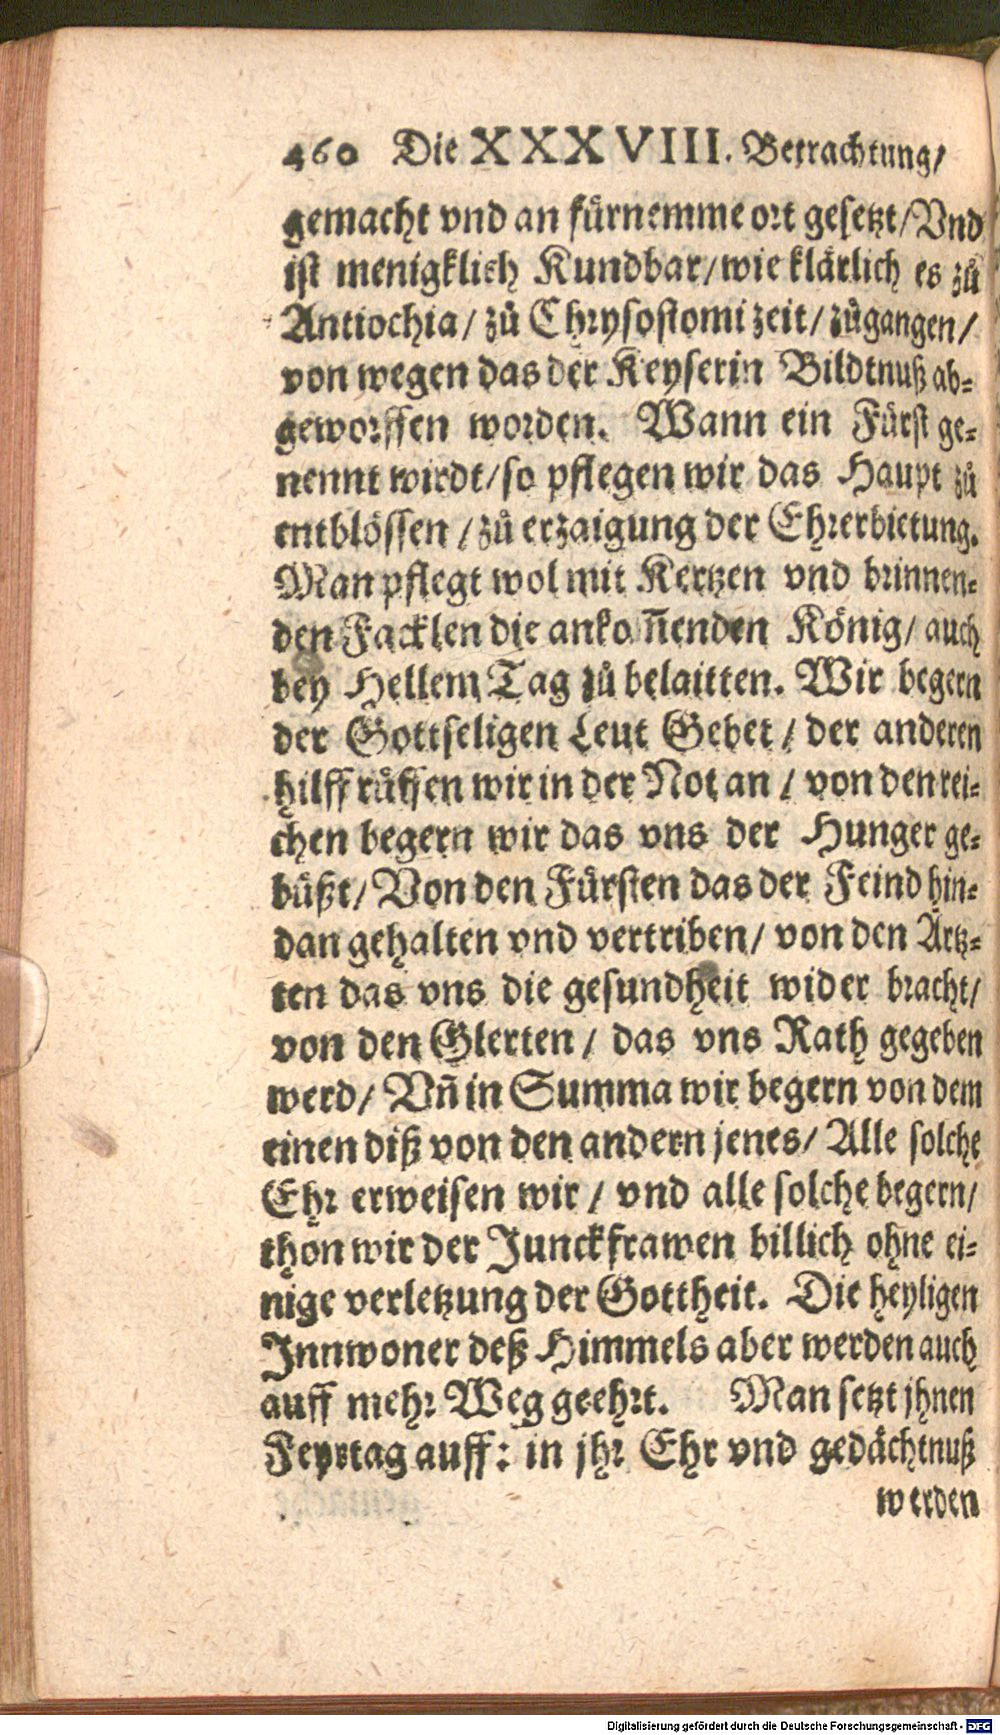 460 Die XXXVIII. Betrachtung/
gemacht vnd an fürnemme ort gesetzt/Vnd
ist menigklich Kundbar/wie klärlich es zů
Antiochia/ zů Chrysostomi zeit/ zůgangen/
von wegen das der Keyserin Bildtnuß ab-
geworffen worden. Wann ein Fürst ge-
nennt wirdt/so pflegen wir das Haupt zů
entblössen/zů erzaigung der Ehrerbietung.
Man pflegt wol mit Kertzen vnd brinnen-
den Facklen die ankom̃enden König/ auch
bey Hellem Tag zů belaitten. Wir begern
der Gottseligen Leut Gebet/ der anderen
hilff růffen wir in der Not an/ von den rei-
chen begern wir das vns der Hunger ge-
büßt/Von den Fürsten das der Feind hin-
dan gehalten vnd vertriben/ von den Ärtz-
ten das vns die gesundheit wider bracht/
von den Glerten/ das vns Rath gegeben
werd/ Vñ in Summa wir begern von dem
einen diß von den andern jenes/ Alle solche
Ehr erweisen wir/ vnd alle solche begern/
thon wir der Junckfrawen billich ohne ei-
nige verletzung der Gottheit. Die heyligen
Innwoner deß Himmels aber werden auch
auff mehr Weg geehrt. Man setzt jhnen
Feyrtag auff: in jhr Ehr vnd gedächtnuß
werden
Digitalisierung gefördert durch die Deutsche Forschungsgemeinschaft - DFG